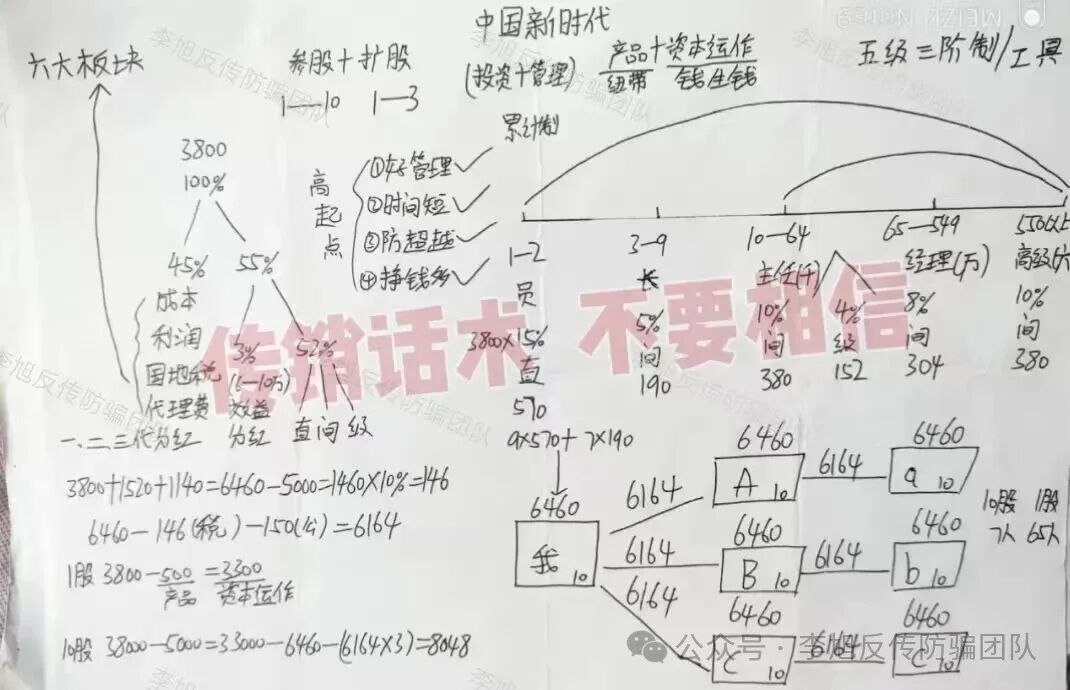 中国新时代
六大板块
参股+扩股
1—10 1—3
(投资+管理)
产品+资本运作
纽带 钱生钱
五级三阶制/工具
3800
100%
45% 55%
成本
利润
国地税
代理费
3% 52%
(1—10万)
效益
分红
直间级
一、二、三代分红
高起点
①好管理
②时间短
③防超越
④挣钱多
累计制
1-2 3-9 10-64 65-549 550以上
员 长 主任(千) 经理(万) 高级(六
3800×15% 5% 10% 4% 8% 10%
直 间 间 级 间 间
570 190 380 152 304 380
传销话术 不要相信
3800+1520+1140=6460-5000=1460×10%=146
6460-146(税)-150(公)=6164
1股 3800-500=3300
产品 资本运作
10股 38000-5000=33000-6460-(6164×3)=8048
9×570+7×190
6460
我 10
6164
6164
6164
6460
A 10
6164
6460
a 10
6460
B 10
6164
6460
b 10
6460
C 10
6164
6460
c 10
10股 1股
7人 65人
公众号·李旭反传防骗团队
李旭反传防骗团队
MEIZU